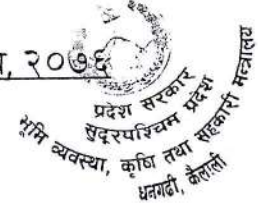 , २०७६
प्रदेश सरकार
सुदूरपश्चिम प्रदेश
भूमि व्यवस्था, कृषि तथा सहकारी मन्त्रालय
धनगढी, कैलाली